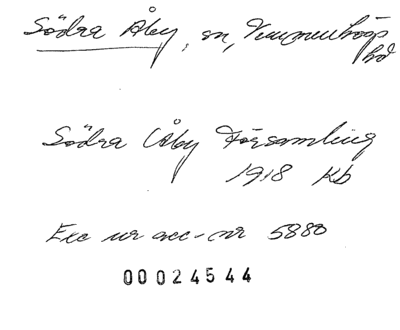 Södra Åby, sn, Vemmenhögs
hd
Södra Åby Församling
1918 Kb
Exc ur acc-nr 5880
00024544